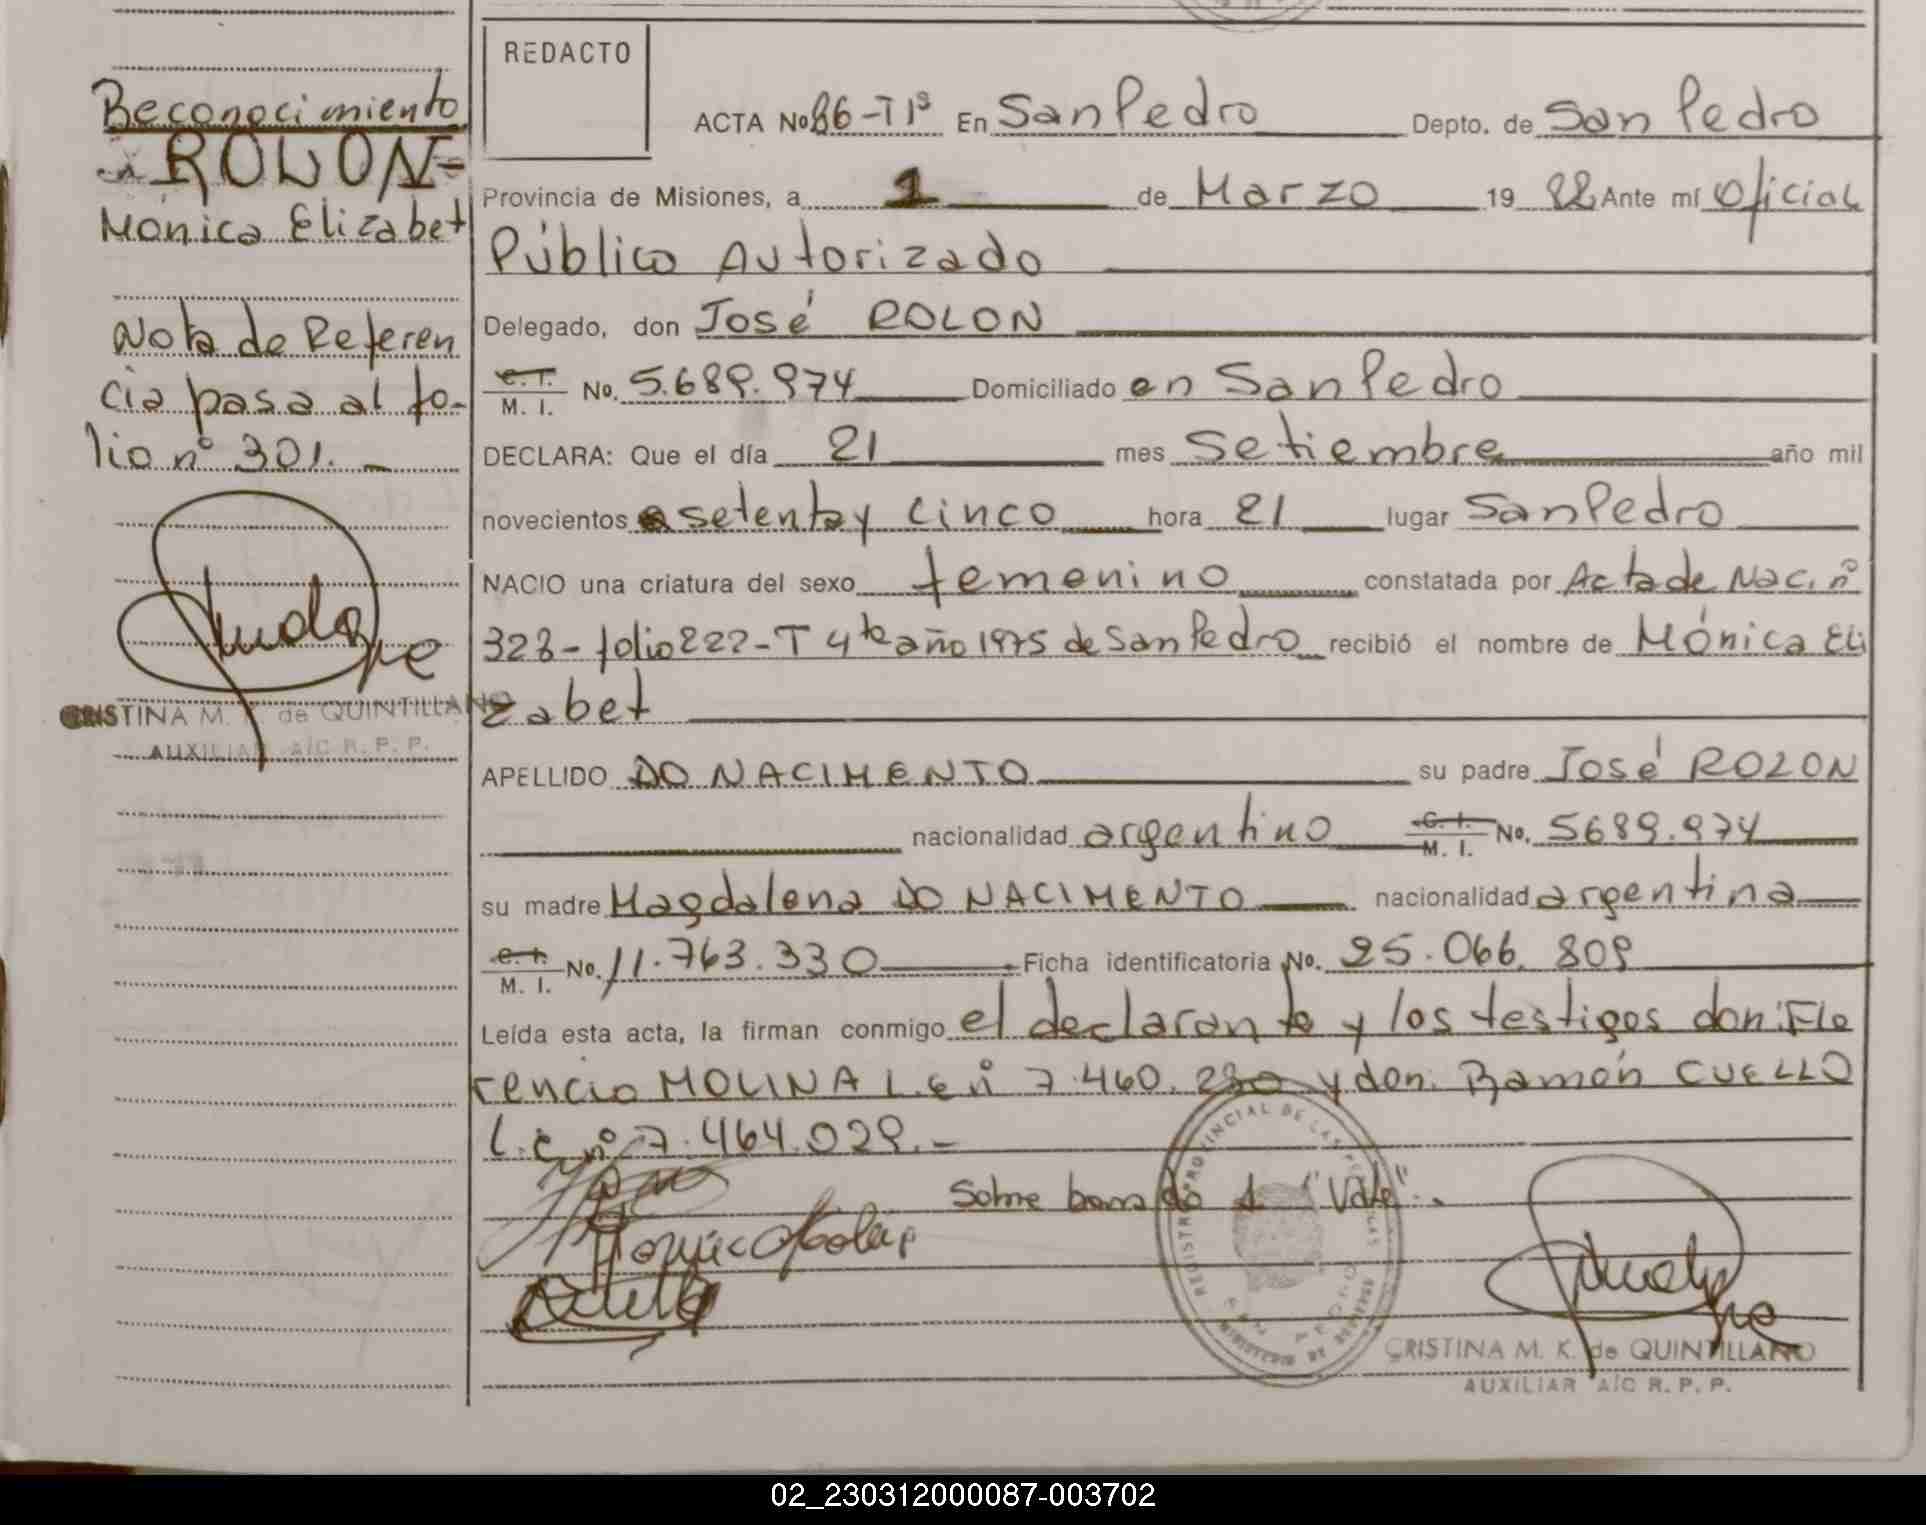 REDACTO
Reconocimiento
ROLON=
Mónica Elizabet
Nota de Referen
cia pasa al fo-
lio nº 301.-
CRISTINA M. K. de QUINTILLANO
AUXILIAR A/C R. P. P.
ACTA No 86-T1º En San Pedro Depto. de San Pedro
Provincia de Misiones, a 1 de Marzo 19 82 Ante mí Oficial
Público Autorizado
Delegado, don José ROLON
C.I. M. I. No. 5.689.974 Domiciliado en San Pedro
DECLARA: Que el día 21 mes Setiembre año mil
novecientos setenta y cinco hora 21 lugar San Pedro
NACIO una criatura del sexo femenino constatada por Acta de Nac. nº
323- folio 222-T 4to año 1975 de San Pedro recibió el nombre de Mónica Eli
zabet
APELLIDO DO NACIMENTO su padre José ROLON
nacionalidad argentino C.I. M. I. No. 5689.974
su madre Magdalena DO NACIMENTO nacionalidad argentina
C.I. M. I. No. 11.763.330 Ficha identificatoria No. 25.066.809
Leída esta acta, la firman conmigo el declarante y los testigos don: Flo
rencio MOLINA L.E nº 7.460.290 y don: Ramón CUELLO
L.E. nº 7.464.029.-
Sobre borrado 1 "Vale".-
REGISTRO PROVINCIAL DE LAS PERSONAS
SAN PEDRO
CRISTINA M. K. de QUINTILLANO
AUXILIAR A/C R. P. P.
02_230312000087-003702